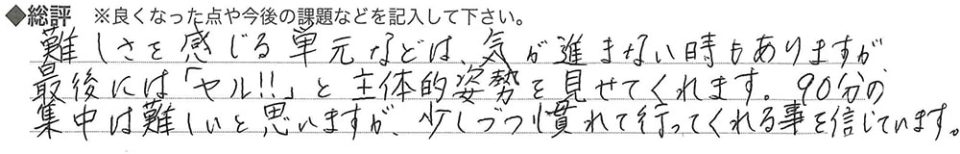 ◆総評 ※良くなった点や今後の課題などを記入して下さい。
難しさを感じる単元などは、気が進まない時もありますが
最後には「ヤル!!」と主体的姿勢を見せてくれます。90分の
集中は難しいと思いますが、少しづつ慣れて行ってくれる事を信じています。